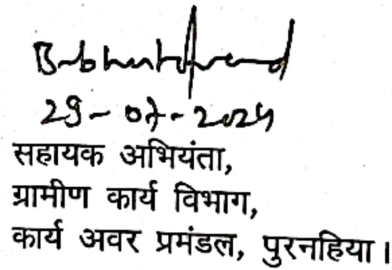 29-07-2024
सहायक अभियंता,
ग्रामीण कार्य विभाग,
कार्य अवर प्रमंडल, पुरनहिया।